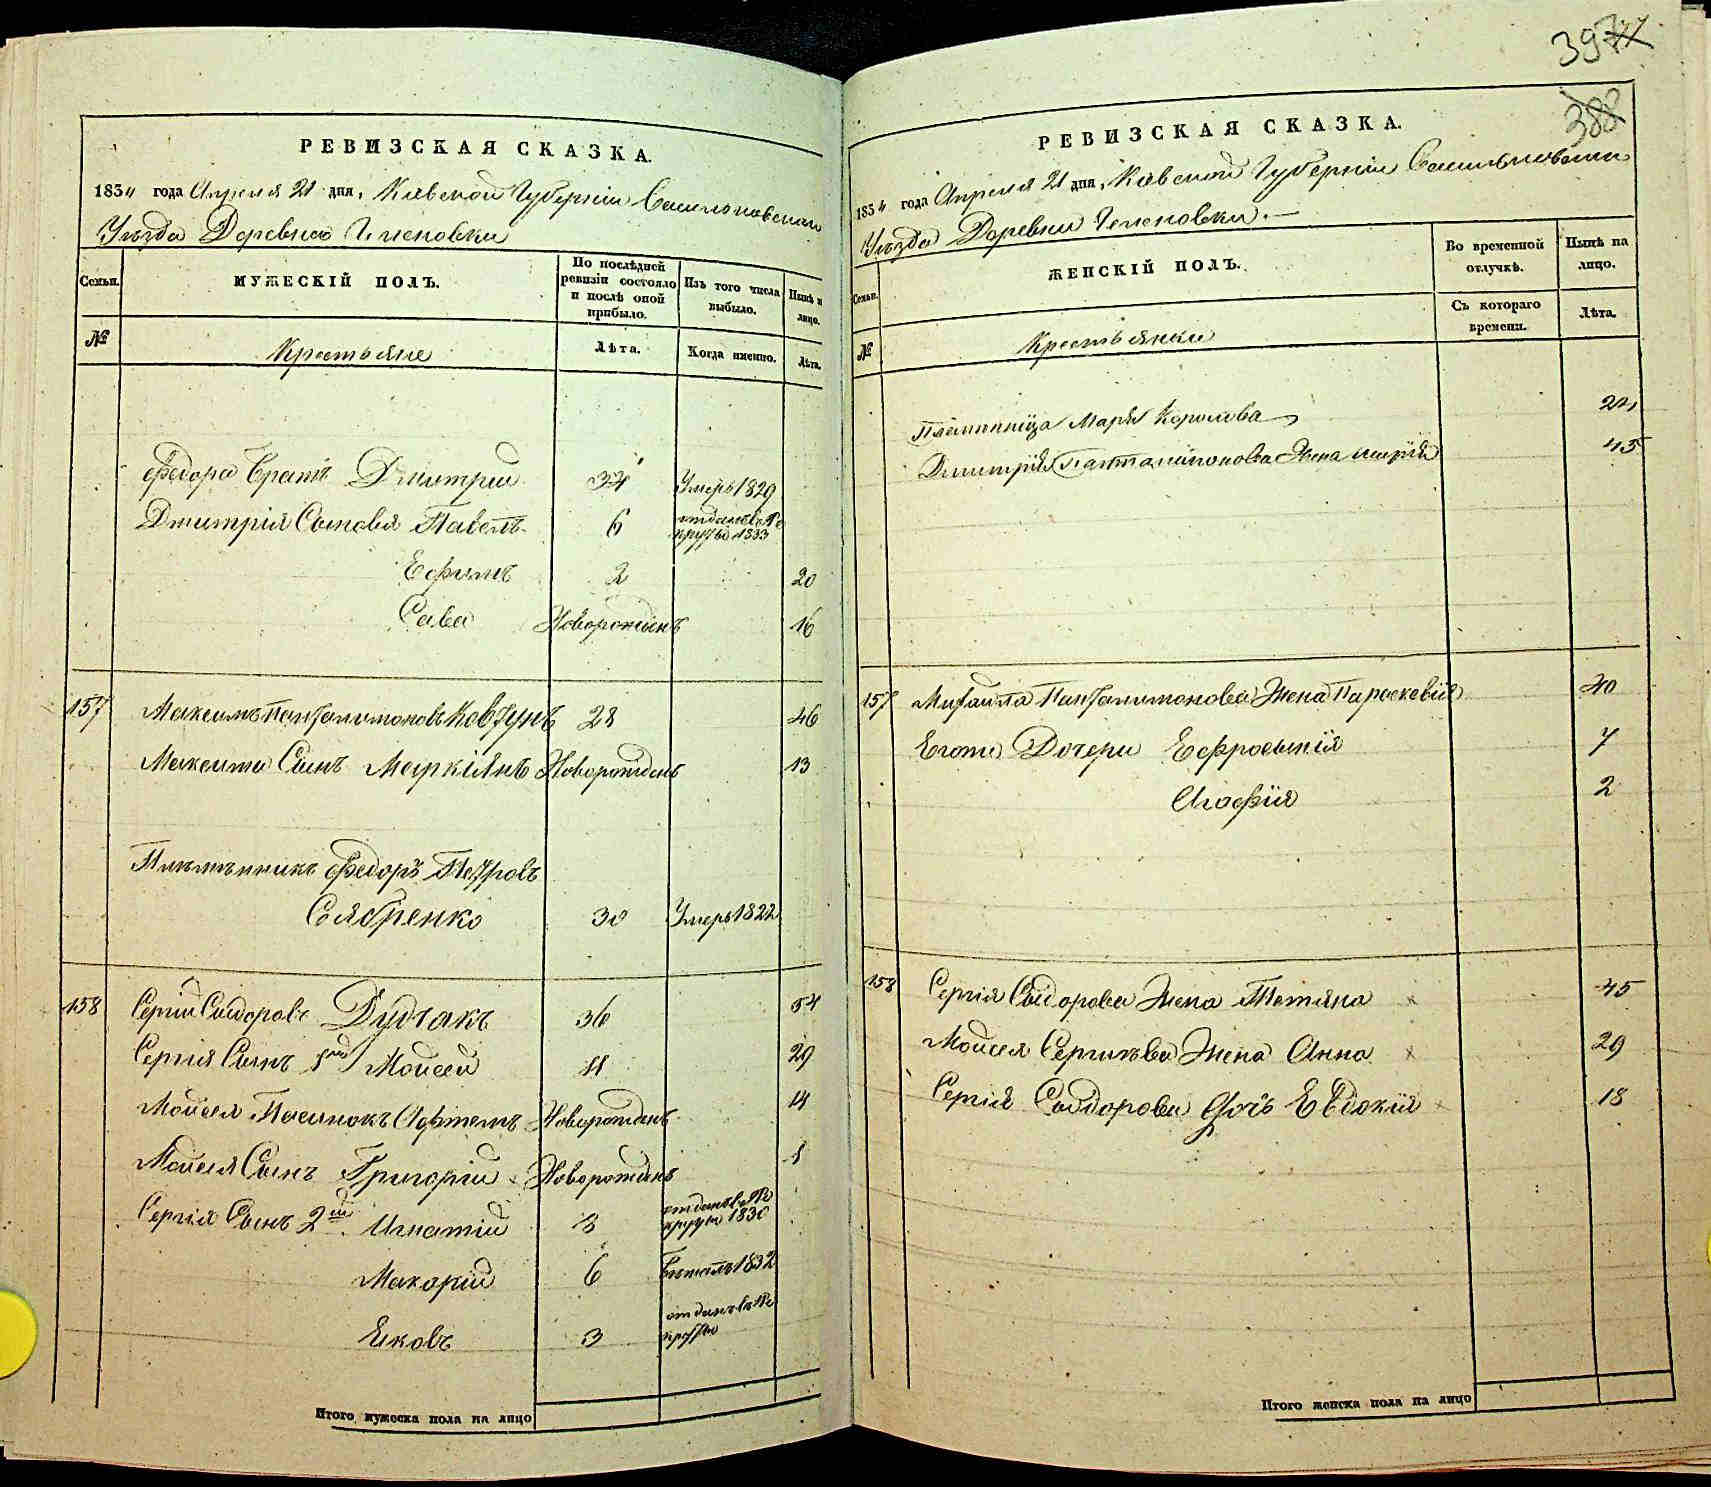 РЕВИЗСКАЯ СКАЗКА.
1834 года Апреля 21 дня, Кіевской Губерніи Васильковскаго
Уѣзда Деревни
Семьи.
МУЖЕСКІЙ ПОЛЪ.
По послѣдней ревизіи состояло и послѣ оной прибыло.
Изъ того числа выбыло.
Нынѣ на лицо.
№
Крестьяне
Лѣта.
Когда именно.
Лѣта.
Федора братъ Дмитрий 34 Умеръ 1829
Дмитрія Сыновья Павелъ 6 отданъ въ Рекруты 1833
Ефимъ 2 20
Сава Новорожденъ 16
157 Максимъ Пантелимоновъ Ковтунъ 28 46
Максима Сынъ Маркіянъ Новорожденъ 13
Племянникъ Федоръ Петровъ
30 Умеръ 1822
158 Сергій Сидоровъ Дудчакъ 36 54
Сергія Сынъ 1й Моисей 11 29
Моисея Пасынокъ Артемъ Новорожденъ 14
Моисея Сынъ Григорій Новорожденъ 1
Сергія Сынъ 2й Игнатій 8 отданъ въ Рекруты 1830
Макарій 6 Бѣжалъ 1832
Яковъ 3 отданъ въ Рекруты
Итого мужеска пола на лицо
397
388
РЕВИЗСКАЯ СКАЗКА.
1834 года Апреля 21 дня, Кіевской Губерніи Васильковскаго
Уѣзда Деревни
Семьи.
ЖЕНСКІЙ ПОЛЪ.
Во временной отлучкѣ.
Нынѣ на лицо.
№
Крестьянки
Съ котораго времени.
Лѣта.
Племянница Марія
Дмитрія Панталимонова Жена Марія 45
157 Михаила Панталимонова Жена Параскевія 40
Его Дочери Ефросынія 7
Агафія 2
158 Сергія Сидорова Жена Татяна 45
Моисея Сергиева Жена Анна 29
Сергія Сидорова Дочь Евдокія 18
Итого женска пола на лицо